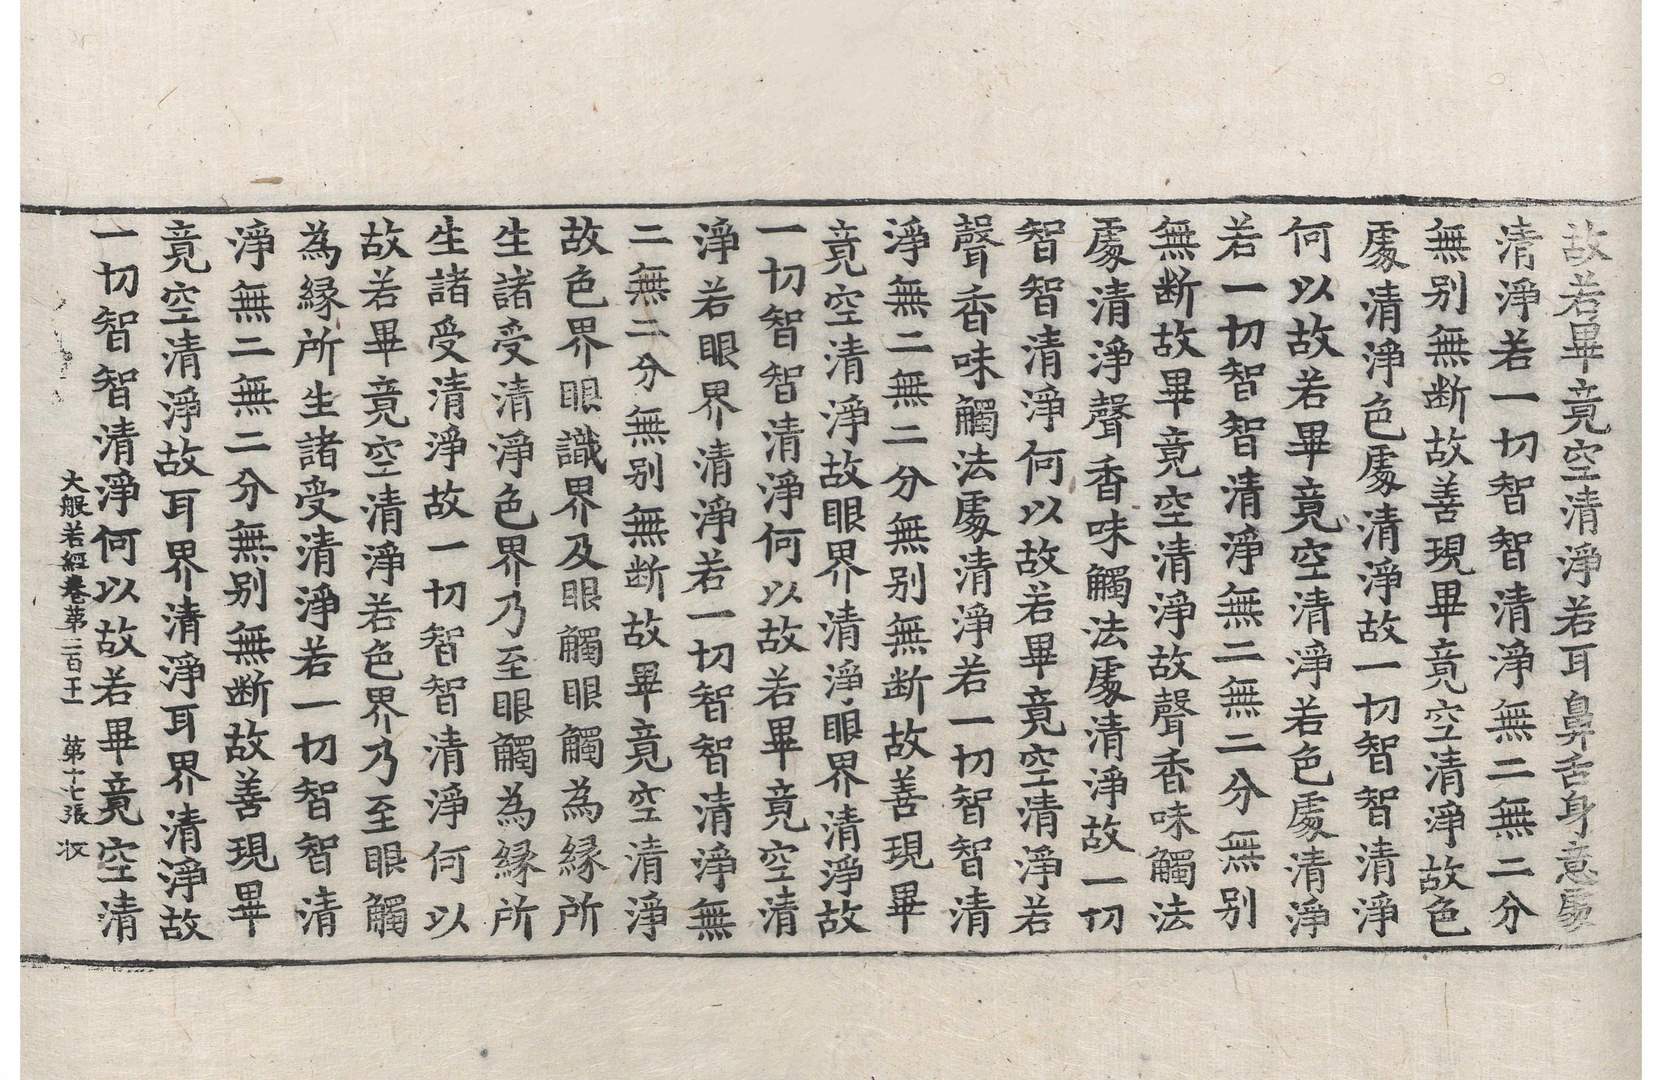 故若畢竟空清淨若耳鼻舌身意處
清淨若一切智智清淨無二無二分
無别無断故善現畢竟空清淨故色
處清淨色處清淨故一切智智清淨
何以故若畢竟空清淨若色處清淨
若一切智智清淨無二無二分無别
無断故畢竟空清淨故聲香味觸法
處清淨聲香味觸法處清淨故一切
智智清淨何以故若畢竟空清淨若
聲香味觸法處清淨若一切智智清
淨無二無二分無别無断故善現畢
竟空清淨故眼界清淨眼界清淨故
一切智智清淨何以故若畢竟空清
淨若眼界清淨若一切智智清淨無
二無二分無别無断故畢竟空清淨
故色界眼識界及眼觸眼觸為縁所
生諸受清淨色界乃至眼觸為縁所
生諸受清淨故一切智智清淨何以
故若畢竟空清淨若色界乃至眼觸
為縁所生諸受清淨若一切智智清
淨無二無二分無别無断故善現畢
竟空清淨故耳界清淨耳界清淨故
一切智智清淨何以故若畢竟空清
大般若經卷第二百 第十七張